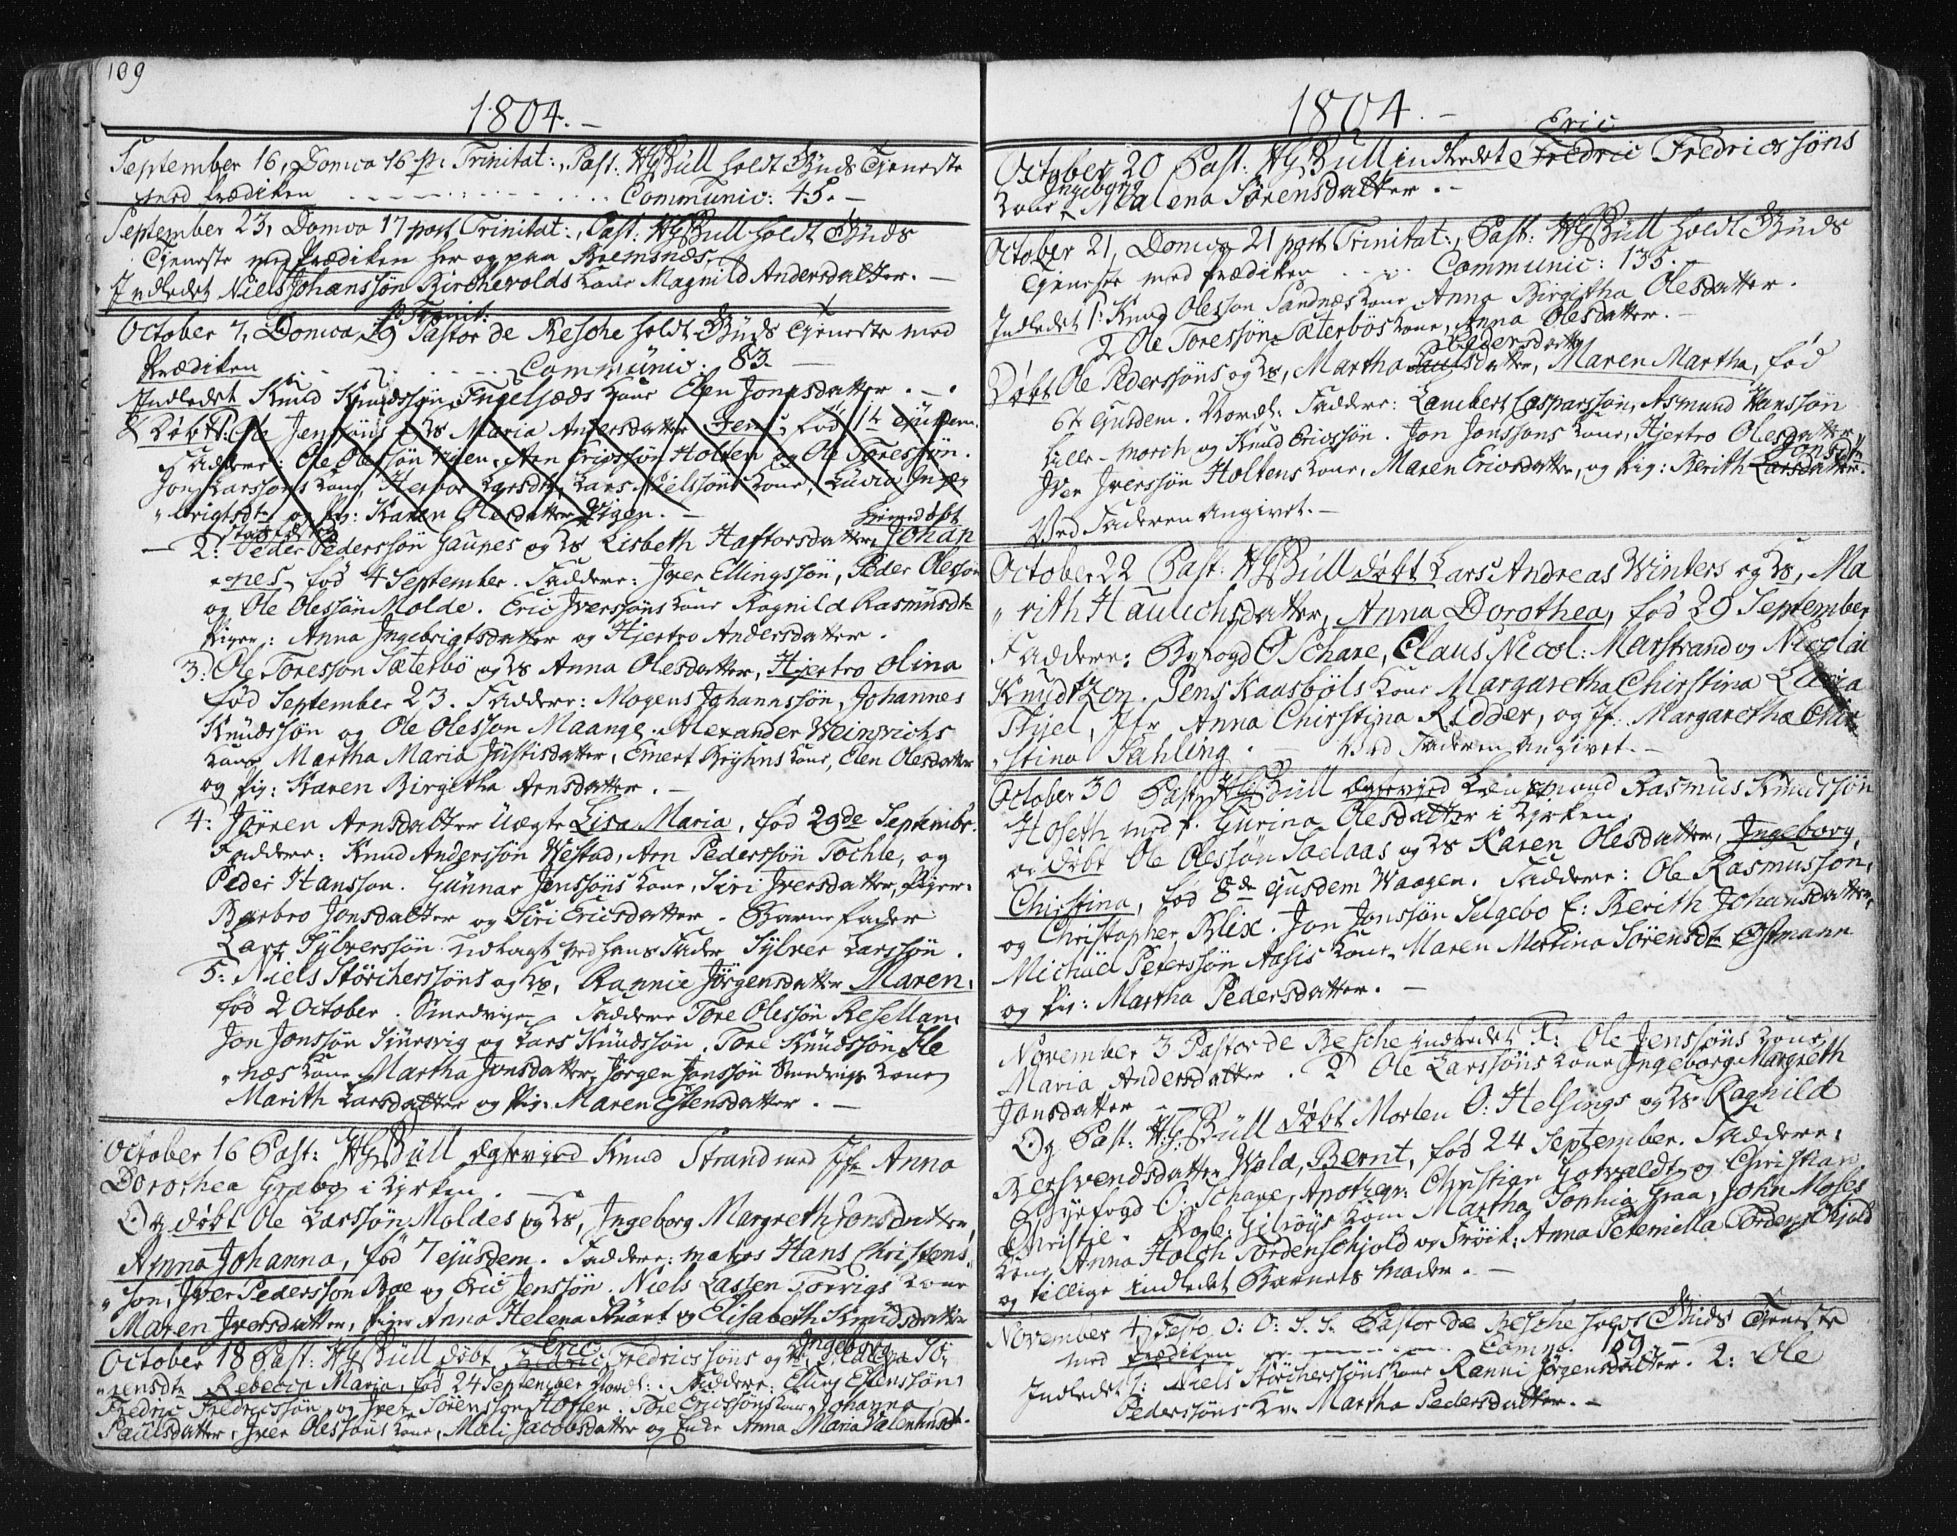 109
1804. –
September 16, Domca 16 p: Trinitat:, Past: HGBüll holdt Guds Tjeneste
med Prædiken Communic: 45. –
September 23, Domca 17 post Trinitat:, Past: HGBüll holdt Guds
Tjeneste med Prædiken her og paa Bremsnes.
Indledet Niels Johanssøn Birchevolds Kone Magnild Andersdatter. –
p Trinit:
October 7, Domca 19 Pastor de Besche holdt Guds Tjeneste med
Prædiken Communic: 83. –
Indledet Knud Knudssøn Kone Elen Jonasdatter . – .
& Døbt 1: Ole Jenssøns og Hs Maria Andersdatter fød ejusdem.
Faddere: Ole Olessøn Vigen, Arn Ericssøn Holten og Ole Toressøn.
Jon Larssøns Kone, Lars Nielssøns Kone, Lucia Inge,,
,,brigtsdtr og Pig: Karen Olesdatter Vigen. –
Hiemedøbt
– 2: Peder Pederssøn og Hs Lisbeth Haftorsdatter, Johan
,,nes, fød 4 September. Faddere: Iver Ellingssøn, Peder Olessøn
og Ole Olessøn Molde. Eric Iverssøns Kone Ragnild Rasmusdtr
Piger: Anna Ingebrigtsdatter og Hjertro Andersdatter.
3: Ole Toressøn Sæterbø og Hs Anna Olesdatter, Hjertro Olina
fød September 23. Faddere: Mogens Johannssøn, Johannes
Knudssøn og Ole Olessøn Maange. Alexander Weinrichs
Kone Martha Maria Justisdatter, Emert Bryhns Kone, Elen Olesdatter
og Pig: Karen Birgitha Arnsdatter. –
4: Jøren Arnsdatter Uægte Lisa Maria, fød 29de Septembr.
Faddere: Knud Anderssøn Westad, Arn Pederssøn Tochle, og
Peder Hanssøn. Gunnar Jenssøns Kone, Siri Iversdatter, Piger:
Barbro Jonsdatter og Siri Ericsdatter. Barnefader
Lars Sylverssøn Udlagt ved hans Fader Sylver Larssøn.
5: Niels Størcherssøns og Hs, Rannie Jørgensdatter Maren,
fød 2 October. Smedvigen Faddere Tore Olessøn Resellan,
Jon Jonssøn Siursvig og Lars Knudssøn. Tore Knudssøn Fle
,,næs Kone Martha Jonsdatter, Jørgen Jonssøn Smedvigs Kone
Marith Larsdatter og Pig: Maren Estensdatter. –
October 16 Past: HGBüll ægteviede Knud Strand med Jfr Anna
Dorothea Grabo i Kirken. –
Og døbt Ole Larssøn Moldes og Hs, Ingeborg Margreth Jonsdatter,
Anna Johanna, fød 7 ejusdem. Faddere: Hans Christens,,
,,søn, Iver Pederssøn Boe og Eric Jenssøn. Niels Lassen Torvigs Kone
Maren Iversdatter, Piger Anna Helena og Elisabeth Knudsdatter
Eric Ingeborg
October 18 Past: HGBüll døbt Fredric Fredricssøns og Hs, Malena Sø,,
,,rensdtr Rebecca Maria, fød 24 September Nordl: Faddere: Elling Estenssøn,
Fredric Fredricssøn og Iver Sørenssøn Hosten. Tore Ericssøns Kone Johanna
Paulsdatter, Iver Olessøns Kone, Mali Jacobsdatter og Enke Anna Maria
1804. –
Eric
October 20 Past: HGBüll indledet Fredric Fredricssøns
Ingeborg
Kone Malena Sørensdatter. –
October 21, Domca 21 post Trinitat:, Past: HGBüll holdt Guds
Tjeneste med Prædiken Communic: 135. –
Indledet 1: Knud Olessøn Sandnæs Kone Anna Birgitha Olesdatter.
2 Ole Toressøn Sæterbøs Kone, Anna Olesdatter. –
Pedersdatter
Døbt Ole Pederssøns og Hs, Martha Paulsdatter, Maren Martha, fød
6te ejusdem. Nordl: Faddere: Lambert Casparssøn, Asmund Hanssøn
Lille-morch og Knud Ericssøn. Jon Jonssøns Kone, Hjertro Olesdatter,
Jonsdtr
Iver Iverssøn Holtens Kone, Maren Ericsdatter, og Pig: Berith Larsdatter.
Ved Faderen Angivet. –
October 22 Past: HGBüll døbt Lars Andreas Winters og Hs, Ma
,,rith Hauichsdatter, Anna Dorothea, fød 29 September
Faddere: Byfogd OSchare, Claus Nicol: Marstrand og Nicolai
Knudtzon. Jens Kaasbøls Kone Margaretha Christina Lucia
Thjel, Jfr Anna Christina Ridder, og Jf: Margaretha Chir
,,stina Dahling. – Ved Faderen Angivet. –
October 30 Past: HGBüll Ægteviede Rasmus Knudssøn
Hoseth med P. Gurina Olesdatter i Kirken.
og døbt Ole Olessøn Sadaas og Hs Karen Olesdatter, Ingeborg
Christina, fød 8de ejusdem Waagen. Faddere: Ole Rasmussøn,
og Christopher Blix. Jon Jonssøn Selgebo K: Berith Johansdatter,
Michael Peterssøn Kone, Maren Martina Sørensdtr Østmann
og Pig: Martha Pedersdatter. –
November 3 Pastor de Besche indledet 1: Ole Jenssøns Kone
Maria Andersdatter. 2 Ole Larssøns Kone Ingeborg Margreth
Jonsdatter –
Og Past: HGBüll døbt Morten O: Helsings og Hs Ragnild
Bersvendsdatter Wold, Bernt, fød 24 September. Faddere:
Byefogd O: Schare, Apotheqr: Christian Gotvaldt og Christian
Christie. Rogl. Gilroys Kone Martha Sophia Graa, John Moses
Kone Anna Holch Tordenschjold og Frøik: Anna Peternella Tordenschjold
og tillige indledet Barnets Moder. –
November 4, Festo O: O: S. S. Pastor de Besche holdt Guds Tjeneste
med Prædiken Comm: 169. –
Indledet 1: Niels Størcherssøns Kone Ranni Jørgensdatter. 2: Ole
Pederssøns Kn: Martha Pedersdatter. –